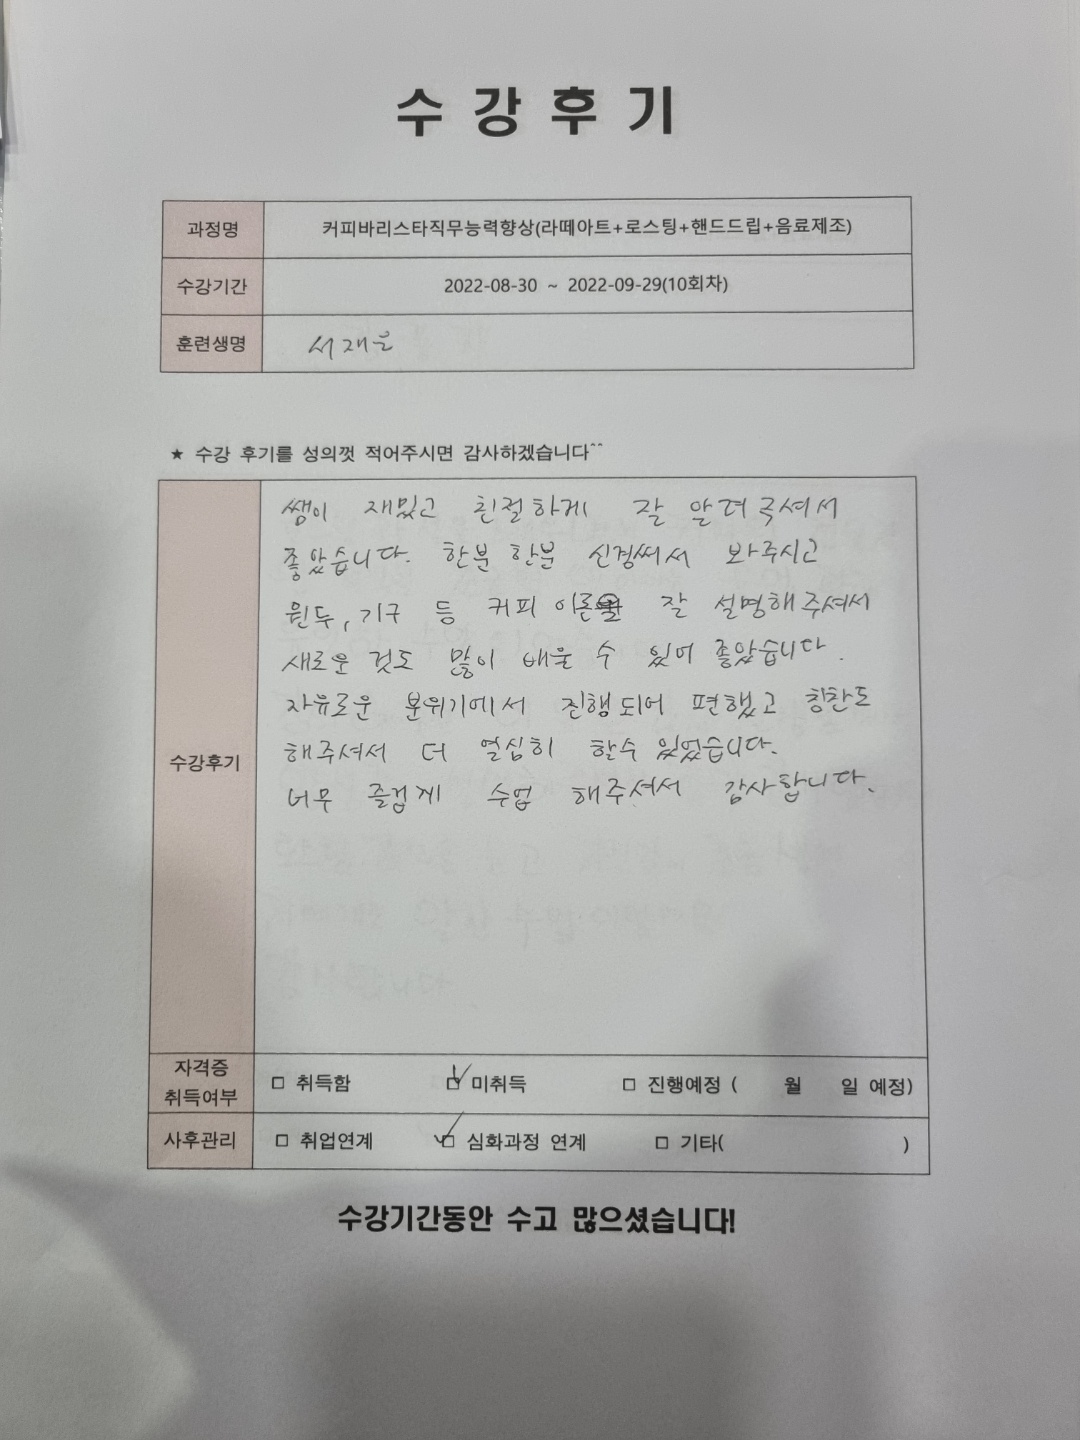 수강후기
과정명 커피바리스타직무능력향상(라떼아트+로스팅+핸드드립+음료제조)
수강기간 2022-08-30 ~ 2022-09-29(10회차)
훈련생명 서재은
★ 수강 후기를 성의껏 적어주시면 감사하겠습니다^^
수강후기
쌤이 재밌고 친절하게 잘 알려주셔서
좋았습니다. 한분 한분 신경써서 봐주시고
원두, 기구 등 커피 이론을 잘 설명해주셔서
새로운 것도 많이 배울 수 있어 좋았습니다.
자유로운 분위기에서 진행되어 편했고 칭찬도
해주셔서 더 열심히 할수 있었습니다.
너무 즐겁게 수업 해주셔서 감사합니다.
자격증 취득여부 □ 취득함 ☑ 미취득 □ 진행예정 ( 월 일 예정)
사후관리 □ 취업연계 ☑ 심화과정 연계 □ 기타( )
수강기간동안 수고 많으셨습니다!